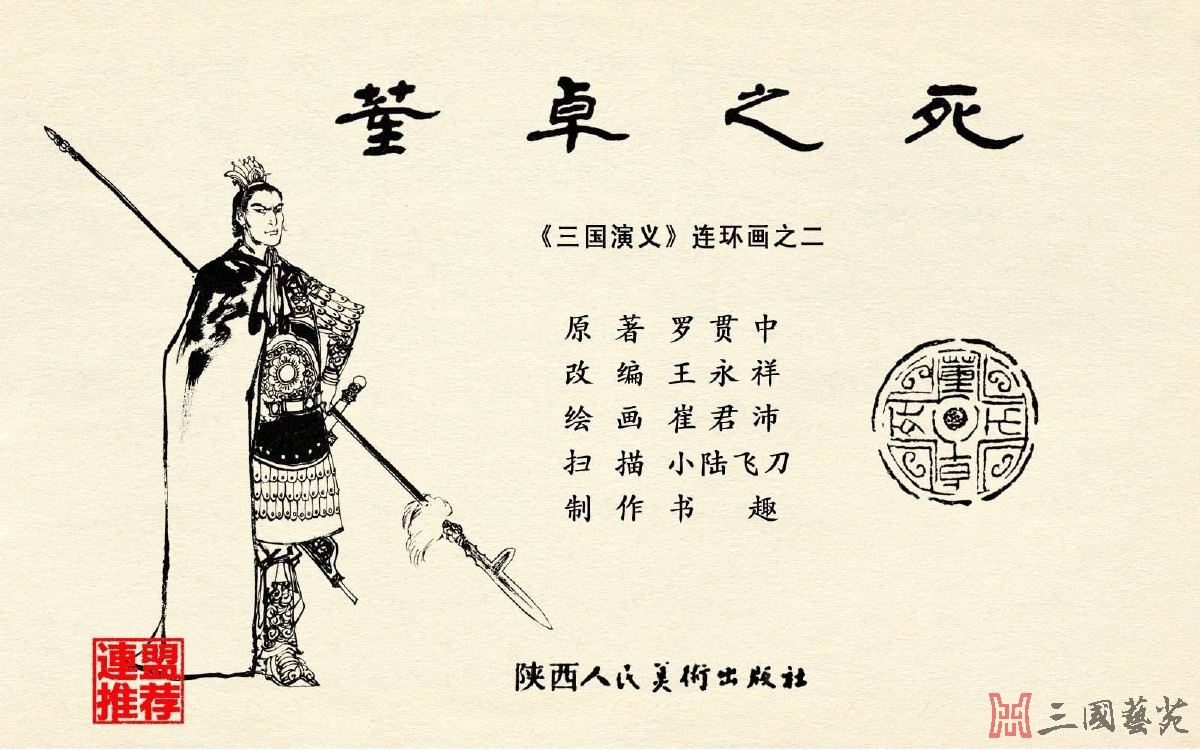 董卓之死
《三国演义》连环画之二
原著 罗贯中
改编 王永祥
绘画 崔君沛
扫描 小陆飞刀
制作 书趣
董卓之死
陕西人民美術出版社
連盟
推荐
三國藝苑